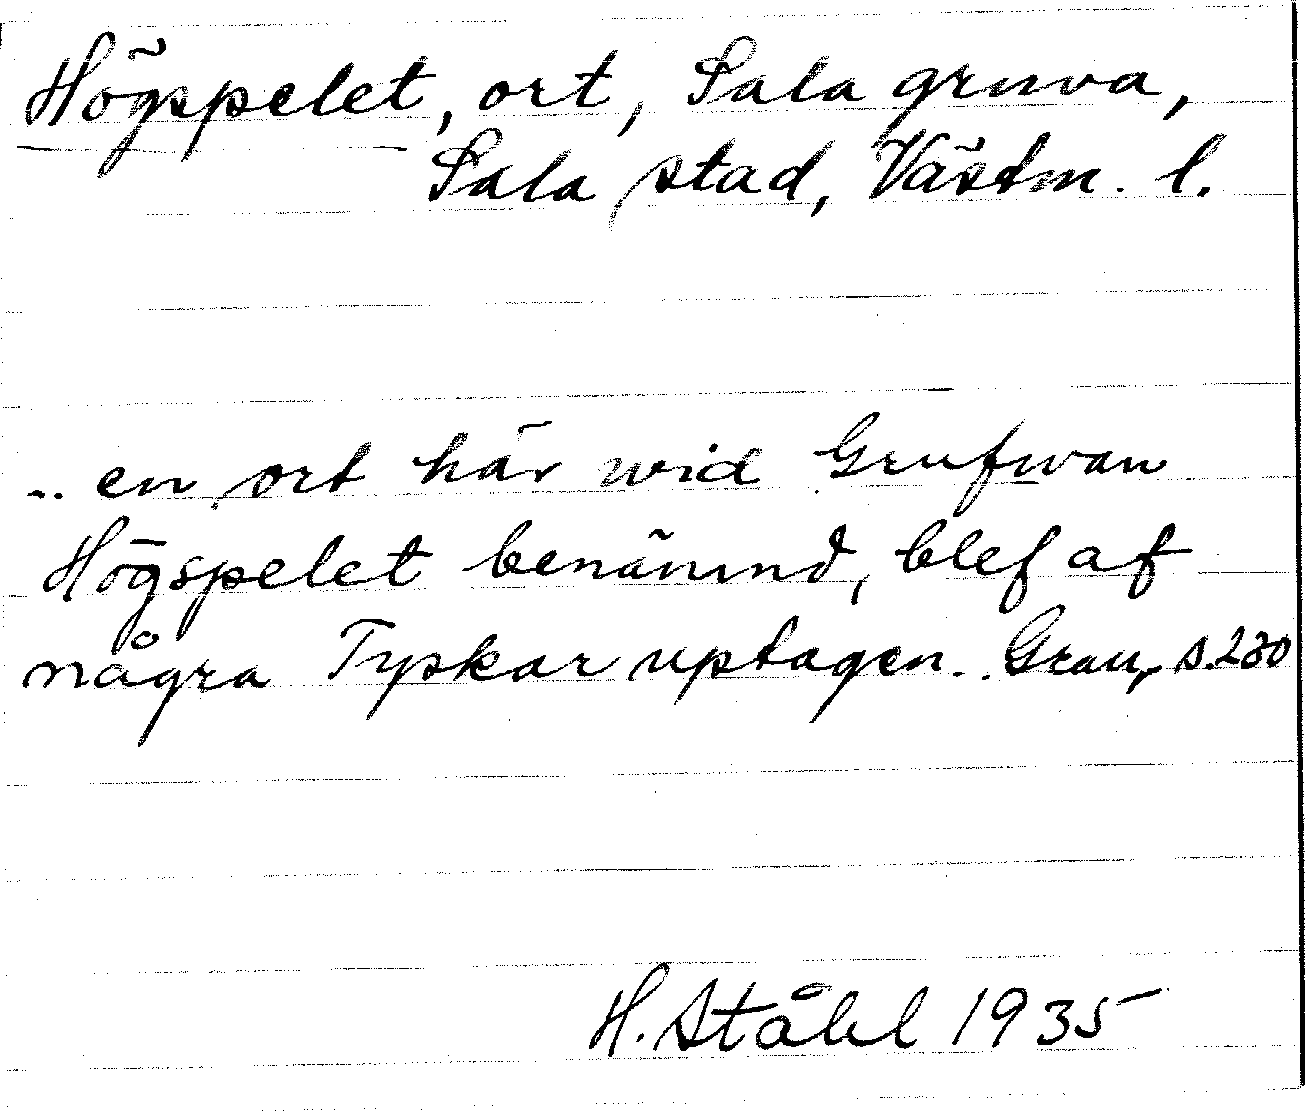 Högspelet, ort, Sala gruva,
Sala stad, Västm. l.
.. en ort här wid Grufwan
Högspelet benämnd, blef af
några Tyskar uptagen. Grau, s. 230
H. Ståhl 1935